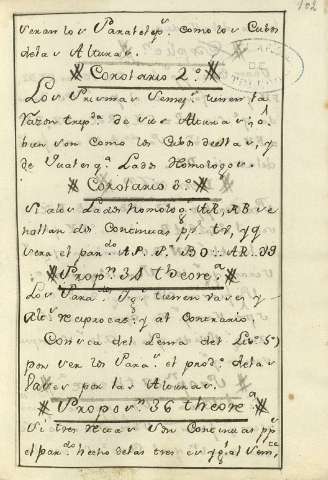 102
seran los Paralelep.s como los Cubos
de las Alturas.
Corolario 2.o
Los Prismas Semej.s tienen la
razon trip.da de sus Alturas, o
bien son como los Cubos de ellas, y
de qualesq.a Lados Homologos.
Corolario 3.o
Si a los Lados homolog.s AR, RB se
hallan dos Continuas
sera el par.do AP. P.o BO :: AR.
Prop.n 35 theore.a
Los Para.dos Yg.s tienen vases y
Alt.s reciprocas, y al Contrario.
Consta del Lema del Lib.o 5.o
por ser los Para.s el prod.o de las
vases por las Alturas.
Propos.n 36 theore.a
Si tres rectas son Continuas pp.s
el par.do hecho de las tres es yg.l al Sem.